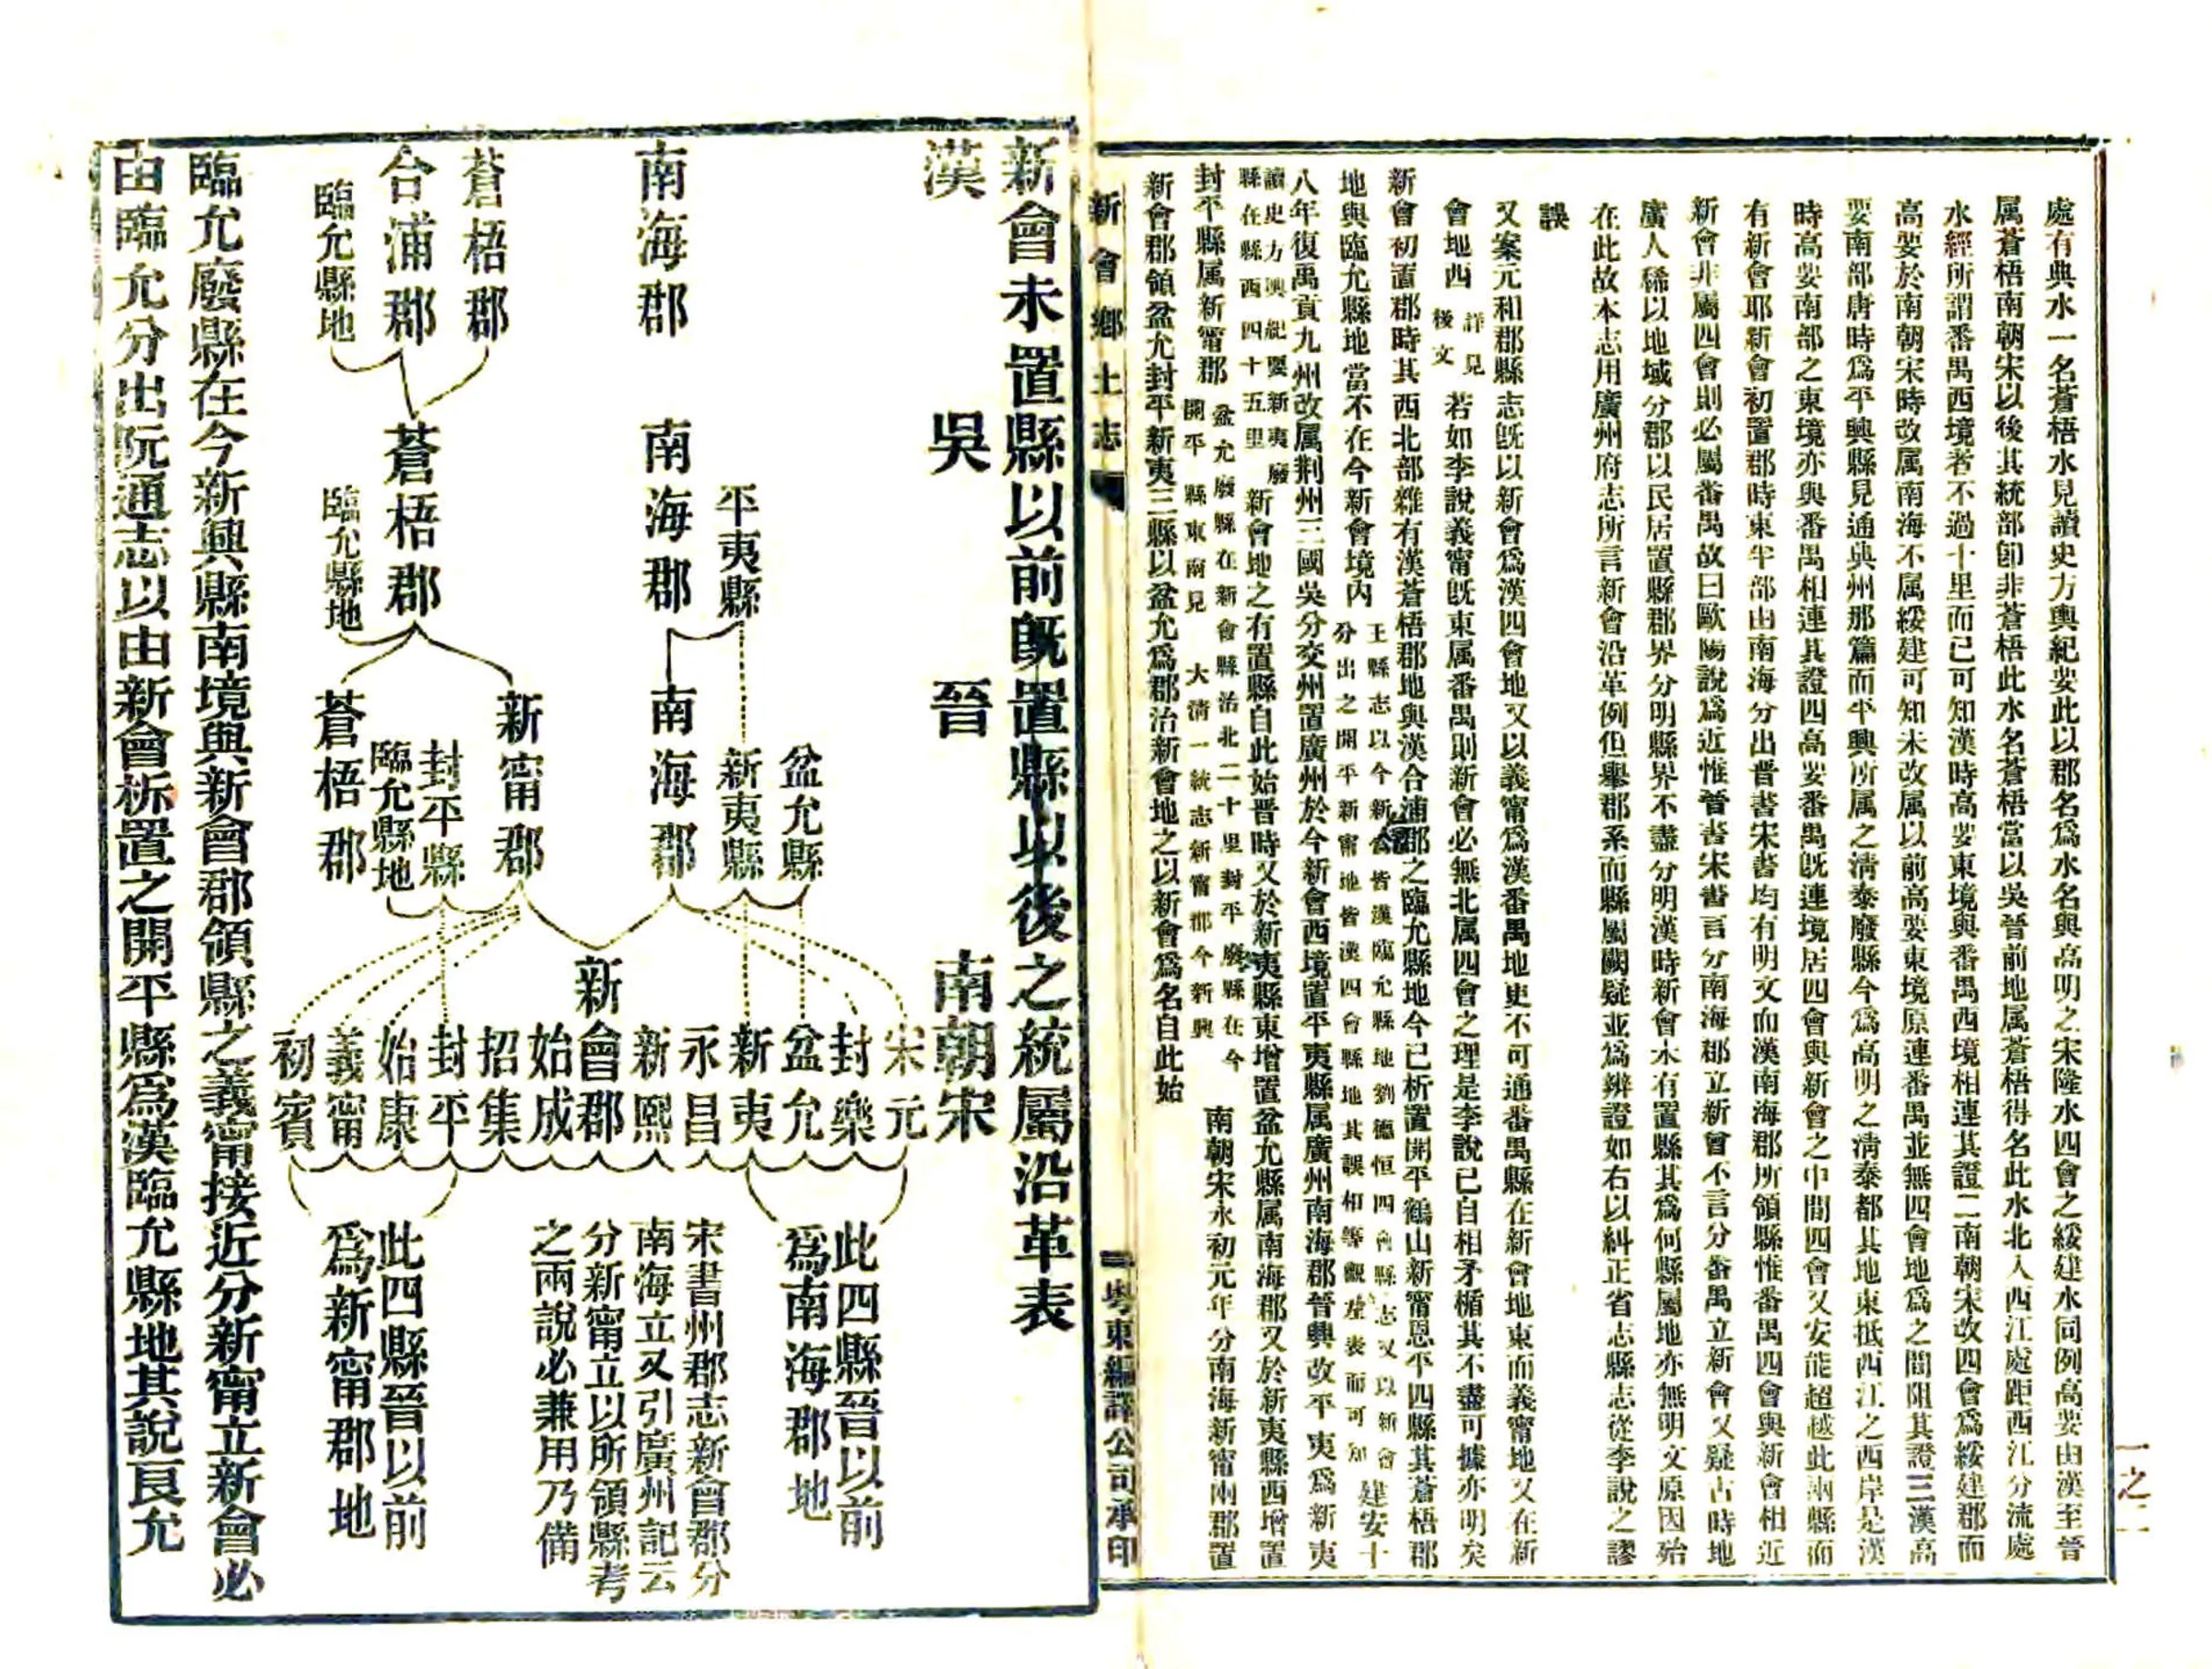 處有典水一名蒼梧水見讀史方輿紀要此以郡名爲水名與高明之宋隆水四會之綏建水同例高要由漢至晉
属蒼梧南朝宋以後其統部卽非蒼梧此水名蒼梧當以吳晉前地属蒼梧得名此水北入西江處距西江分流處
水經所謂番禺西境者不過十里而已可知漢時高要東境與番禺西境相連其證二南朝宋改四會爲綏建郡而
高要於南朝宋時改属南海不属綏建可知未改属以前高要東境原連番禺並無四會地爲之間阻其證三漢高
要南部唐時爲平興縣見通典州郡篇而平興所属之清泰廢縣今爲高明之清泰都其地東抵西江之西岸是漢
時高要南部之東境亦與番禺相連其證四高要番禺旣連境居四會與新會之中間四會又安能超越此兩縣而
有新會耶新會初置郡時東半部由南海分出晉書宋書均有明文而漢南海郡所領縣惟番禺四會與新會相近
新會非屬四會則必屬番禺故曰歐陽說爲近惟晉書宋書言分南海郡立新會不言分番禺立新會又疑古時地
廣人稀以地域分郡以民居置縣郡界分明縣界不盡分明漢時新會未有置縣其爲何縣屬地亦無明文原因殆
在此故本志用廣州府志所言新會沿革例但舉郡系而縣屬闕疑並爲辨證如右以糾正省志縣志從李說之謬
誤
又案元和郡縣志旣以新會爲漢四會地又以義甯爲漢番禺地更不可通番禺縣在新會地東而義甯地又在新
會地西詳見後文若如李說義甯旣東属番禺則新會必無北属四會之理是李說已自相矛楯其不盡可據亦明矣
新會初置郡時其西北部雜有漢蒼梧郡地與漢合浦郡之臨允縣地今已析置開平鶴山新甯恩平四縣其蒼梧郡
地與臨允縣地當不在今新會境內王縣志以今新會皆漢臨允縣地劉德恒四會縣志又以新會分出之開平新甯地皆漢四會縣地其誤相等觀左表而可知建安十
八年復禹貢九州改属荆州三國吳分交州置廣州於今新會西境置平夷縣属廣州南海郡晉興改平夷爲新夷
讀史方輿紀要新夷廢縣在縣西四十五里新會地之有置縣自此始晉時又於新夷縣東增置盆允縣属南海郡又於新夷縣西增置
封平縣属新甯郡盆允廢縣在新會縣治北二十里封平廢縣在今開平縣東南見大清一統志新甯郡今新興南朝宋永初元年分南海新甯兩郡置
新會郡領盆允封平新夷三縣以盆允爲郡治新會地之以新會爲名自此始
新會鄉土志
粤東編譯公司承印
一之二
新會未置縣以前旣置縣以後之統屬沿革表
漢
吳
晉
南朝宋
南海郡
蒼梧郡
合浦郡
臨允縣地
平夷縣
南海郡
蒼梧郡
臨允縣地
盆允縣
新夷縣
南海郡
新甯郡
封平縣
臨允縣地
蒼梧郡
宋元
封樂
盆允
新夷
永昌
新熙
新會郡
始成
招集
封平
始康
義甯
初賓
此四縣晉以前
爲南海郡地
宋書州郡志新會郡分
南海立又引廣州記云
分新甯立以所領縣考
之兩說必兼用乃備
此四縣晉以前
爲新甯郡地
臨允廢縣在今新興縣南境與新會郡領縣之義甯接近分新甯立新會必
由臨允分出阮通志以由新會析置之開平縣爲漢臨允縣地其說良允